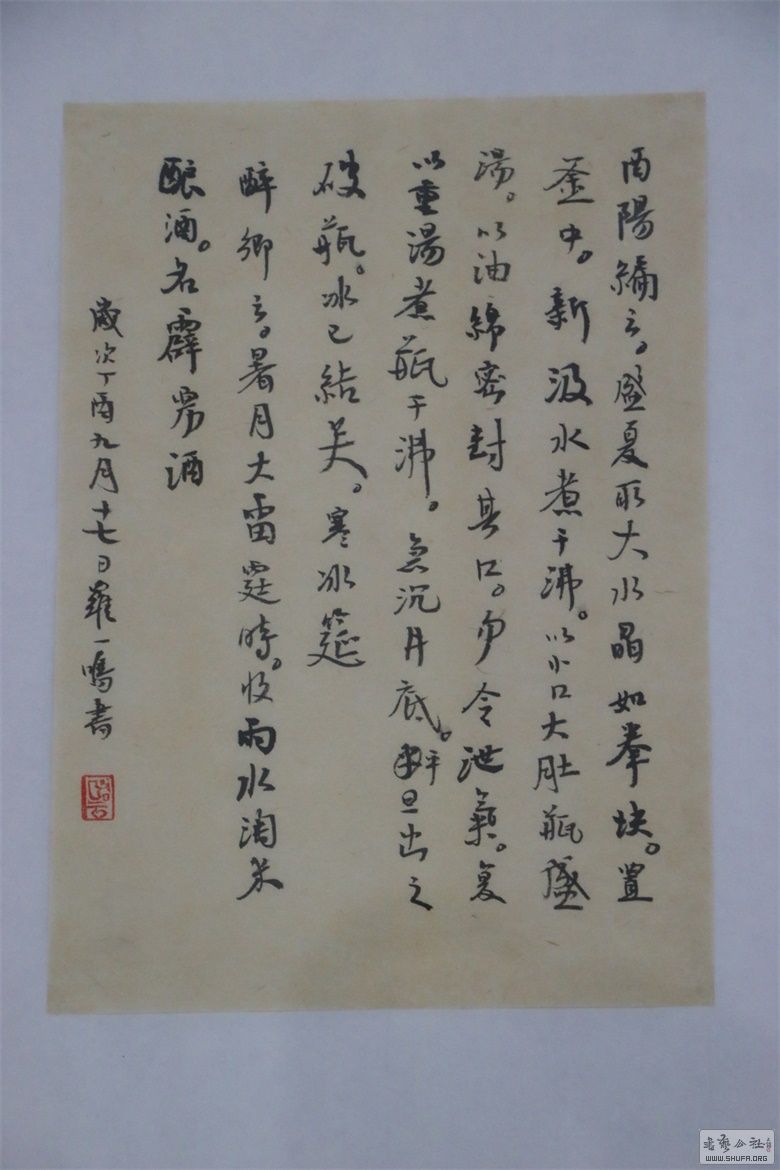 酉陽編云。盛夏取大水晶如拳块。置
釜中。新汲水煮千沸。以小口大肚瓶盛
湯。以油綿密封其口。勿令泄氣。复
以重湯煮瓶千沸。急沉井底。平旦出之
破瓶。冰已結矣。寒冰筵
醉鄉云。暑月大雷霆時。收雨水淘米
酿酒。名霹雳酒
歲次丁酉九月十七日羅一鳴書
書藝公社
WWW.SHUFA.ORG